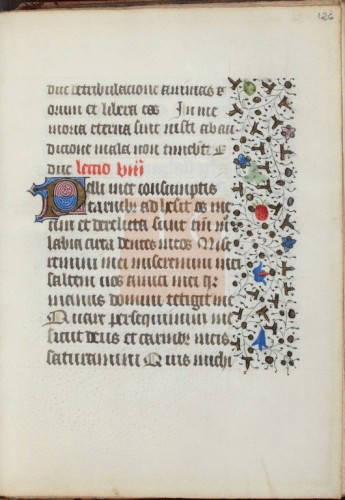 126
duc de tribulacione animas e
orum et libera eas In me
moria eterna sint iusti ab au
dicione mala non timebit
duc lectio viii
Pelli mee consumptis
carnibz adhesit os me
um et derelicta sunt
labia circa dentes meos Mi
seremini mei miseremini mei
saltem vos amici mei
manus domini tetigit me
Quare persequimini me
sicut deus et carnibz meis
saturamini Quis michi